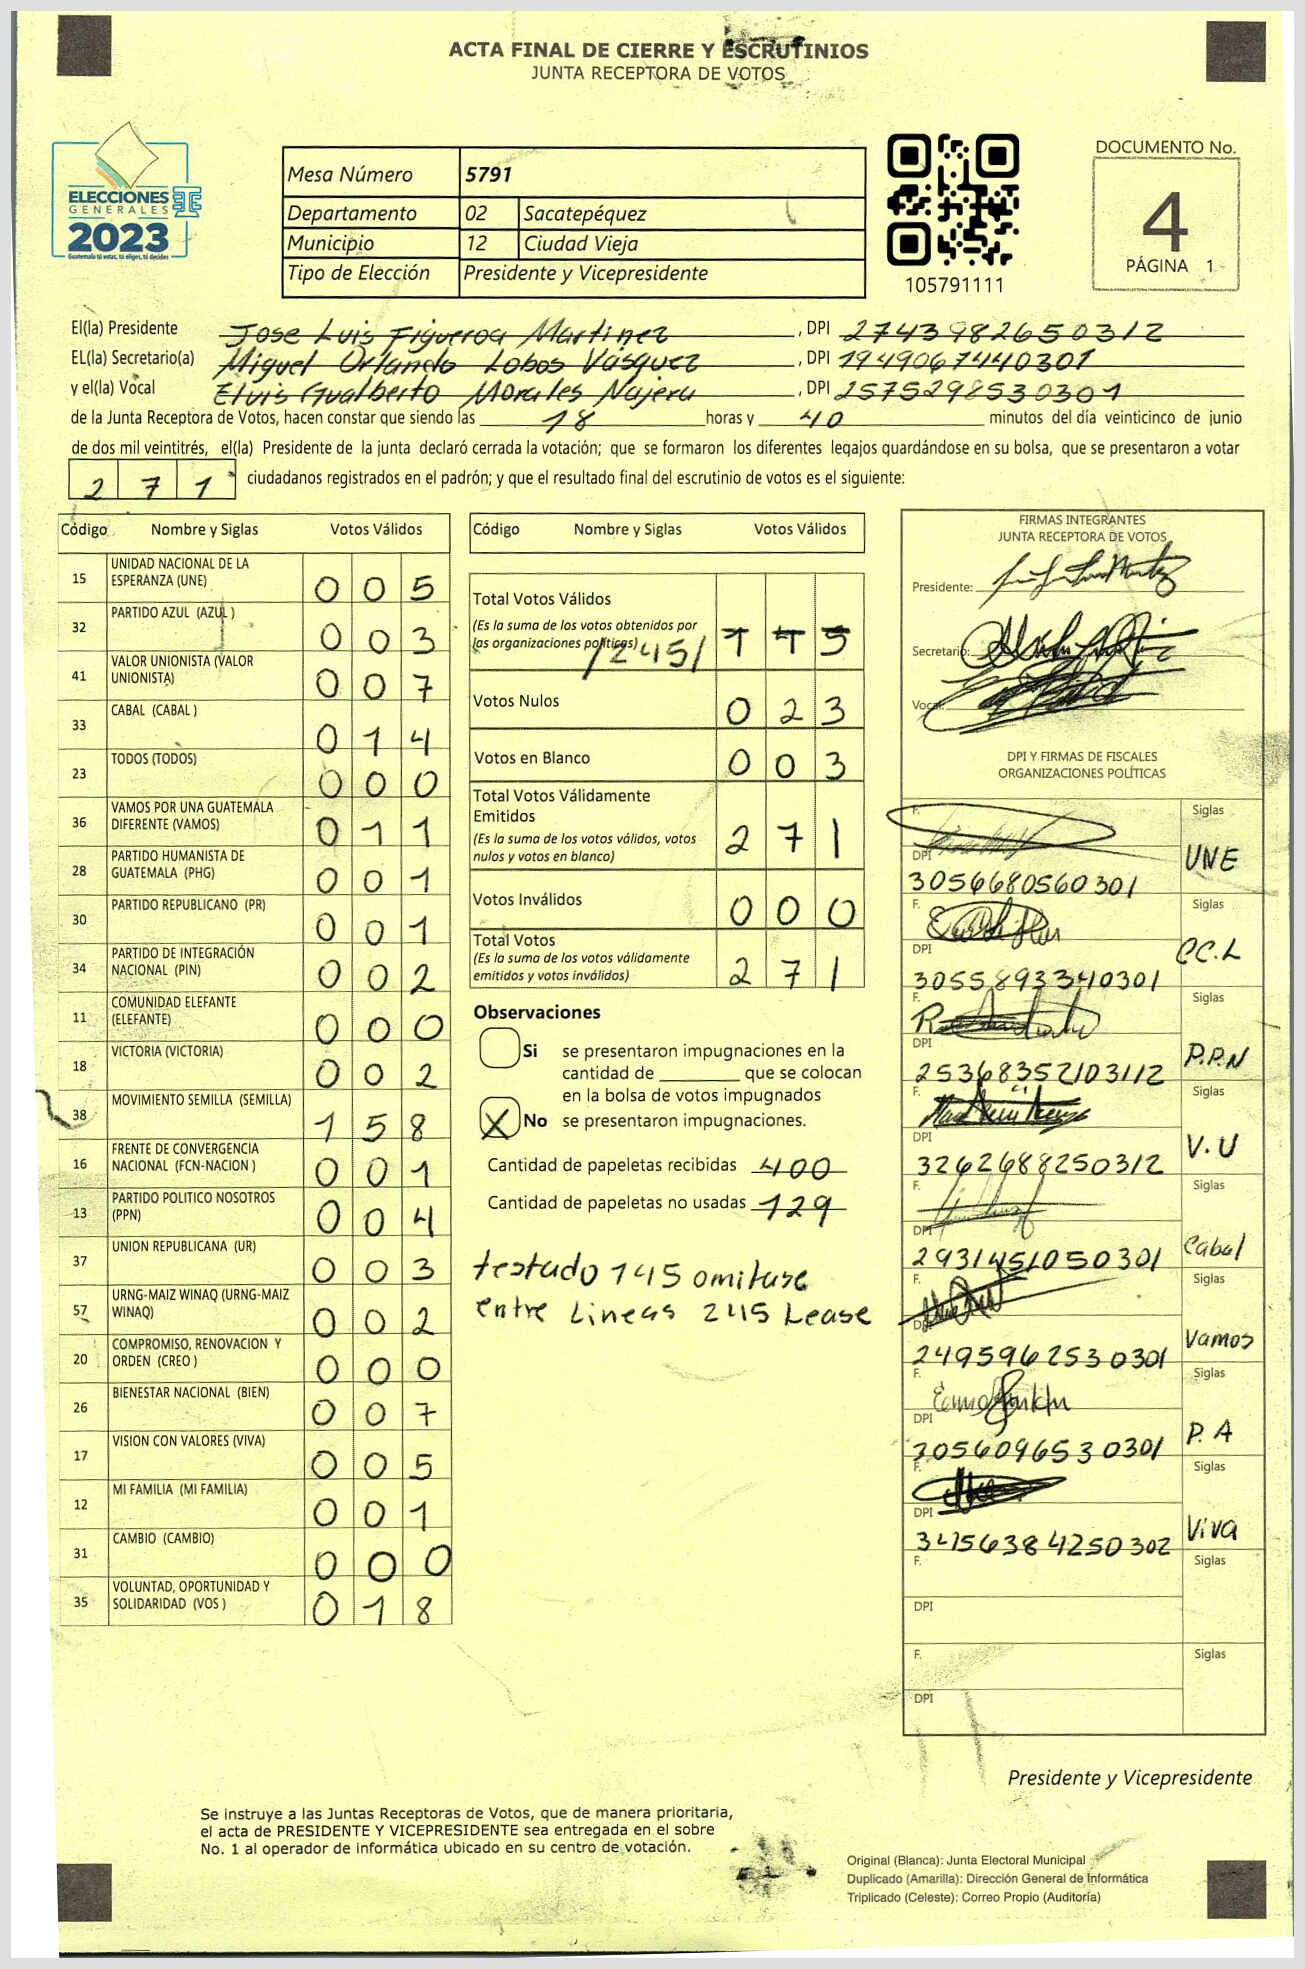 ACTA FINAL DE CIERRE Y ESCRUTINIOS
JUNTA RECEPTORA DE VOTOS
ELECCIONES
GENERALES
2023
Guatemala tú votas, tú eliges, tú decides
Mesa Número 5791
Departamento 02 Sacatepéquez
Municipio 12 Ciudad Vieja
Tipo de Elección Presidente y Vicepresidente
105791111
DOCUMENTO No.
4
PÁGINA 1
El(la) Presidente Jose Luis Figueroa Martinez, DPI 2743982650312
EL(la) Secretario(a) Miguel Orlando Lobos Vásquez, DPI 1949067440301
y el(la) Vocal Elvis Gualberto Morales Najera, DPI 2575298530301
de la Junta Receptora de Votos, hacen constar que siendo las 18 horas y 40 minutos del día veinticinco de junio
de dos mil veintitrés, el(la) Presidente de la junta declaró cerrada la votación; que se formaron los diferentes legajos guardándose en su bolsa, que se presentaron a votar
271 ciudadanos registrados en el padrón; y que el resultado final del escrutinio de votos es el siguiente:
Código Nombre y Siglas Votos Válidos
15 UNIDAD NACIONAL DE LA ESPERANZA (UNE) 005
32 PARTIDO AZUL (AZUL ) 003
41 VALOR UNIONISTA (VALOR UNIONISTA) 007
33 CABAL (CABAL ) 014
23 TODOS (TODOS) 000
36 VAMOS POR UNA GUATEMALA DIFERENTE (VAMOS) 011
28 PARTIDO HUMANISTA DE GUATEMALA (PHG) 001
30 PARTIDO REPUBLICANO (PR) 001
34 PARTIDO DE INTEGRACIÓN NACIONAL (PIN) 002
11 COMUNIDAD ELEFANTE (ELEFANTE) 000
18 VICTORIA (VICTORIA) 002
38 MOVIMIENTO SEMILLA (SEMILLA) 158
16 FRENTE DE CONVERGENCIA NACIONAL (FCN-NACION ) 001
13 PARTIDO POLITICO NOSOTROS (PPN) 004
37 UNION REPUBLICANA (UR) 003
57 URNG-MAIZ WINAQ (URNG-MAIZ WINAQ) 002
20 COMPROMISO, RENOVACION Y ORDEN (CREO ) 000
26 BIENESTAR NACIONAL (BIEN) 007
17 VISION CON VALORES (VIVA) 005
12 MI FAMILIA (MI FAMILIA) 001
31 CAMBIO (CAMBIO) 000
35 VOLUNTAD, OPORTUNIDAD Y SOLIDARIDAD (VOS ) 018
Código Nombre y Siglas Votos Válidos
Total Votos Válidos
(Es la suma de los votos obtenidos por
las organizaciones políticas) /245/ 145
Votos Nulos 023
Votos en Blanco 003
Total Votos Válidamente
Emitidos
(Es la suma de los votos válidos, votos
nulos y votos en blanco) 271
Votos Inválidos 000
Total Votos
(Es la suma de los votos válidamente
emitidos y votos inválidos) 271
Observaciones
Si se presentaron impugnaciones en la
cantidad de ________ que se colocan
en la bolsa de votos impugnados
X No se presentaron impugnaciones.
Cantidad de papeletas recibidas 400
Cantidad de papeletas no usadas 129
testado 145 omitase
entre Lineas 245 Lease
FIRMAS INTEGRANTES
JUNTA RECEPTORA DE VOTOS
Presidente:
Secretario:
Vocal
DPI Y FIRMAS DE FISCALES
ORGANIZACIONES POLÍTICAS
F. Siglas
DPI 3056680560301 UNE
F. Siglas
DPI 3055893340301 CC.L
F. Siglas
DPI 25368352103112 P.P.N
F. Siglas
DPI 3262688250312 V.U
F. Siglas
DPI 2931451050301 Cabal
F. Siglas
DPI 2495962530301 Vamos
F. Siglas
DPI 3056096530301 P.A
F. Siglas
DPI 3456384250302 Viva
F. Siglas
DPI
F. Siglas
DPI
Presidente y Vicepresidente
Se instruye a las Juntas Receptoras de Votos, que de manera prioritaria,
el acta de PRESIDENTE Y VICEPRESIDENTE sea entregada en el sobre
No. 1 al operador de informática ubicado en su centro de votación.
Original (Blanca): Junta Electoral Municipal
Duplicado (Amarilla): Dirección General de Informática
Triplicado (Celeste): Correo Propio (Auditoría)